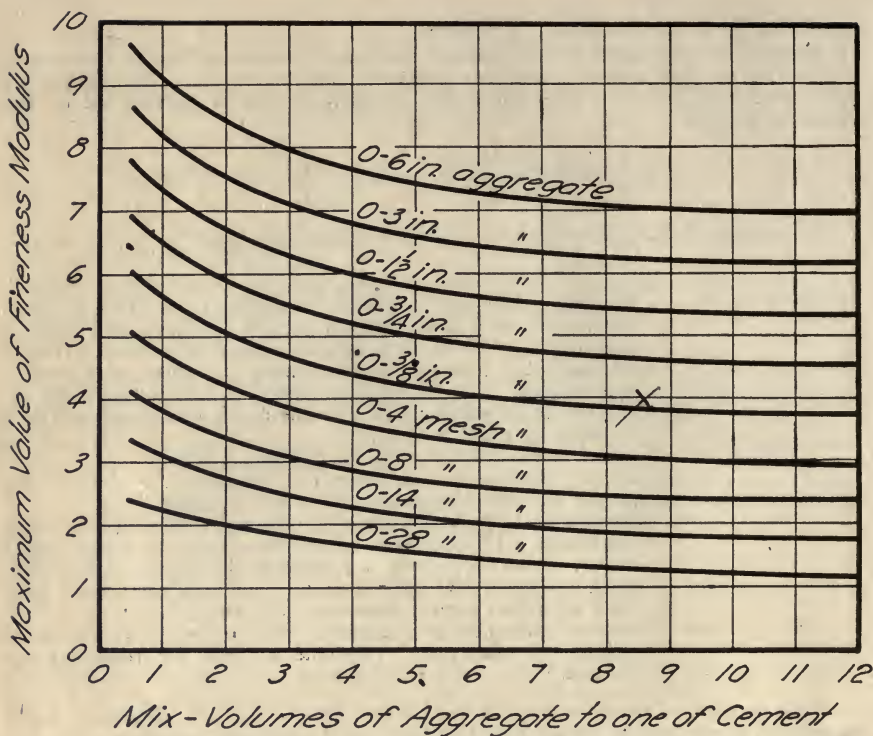 Maximum Value of Fineness Modulus
10
9
8
7
6
5
4
3
2
1
0
0-6 in. aggregate
0-3 in. "
0-1½ in. "
0-¾ in. "
0-⅜ in. "
X
0-4 mesh "
0-8 " "
0-14 " "
0-28 " "
0 1 2 3 4 5 6 7 8 9 10 11 12
Mix-Volumes of Aggregate to one of Cement